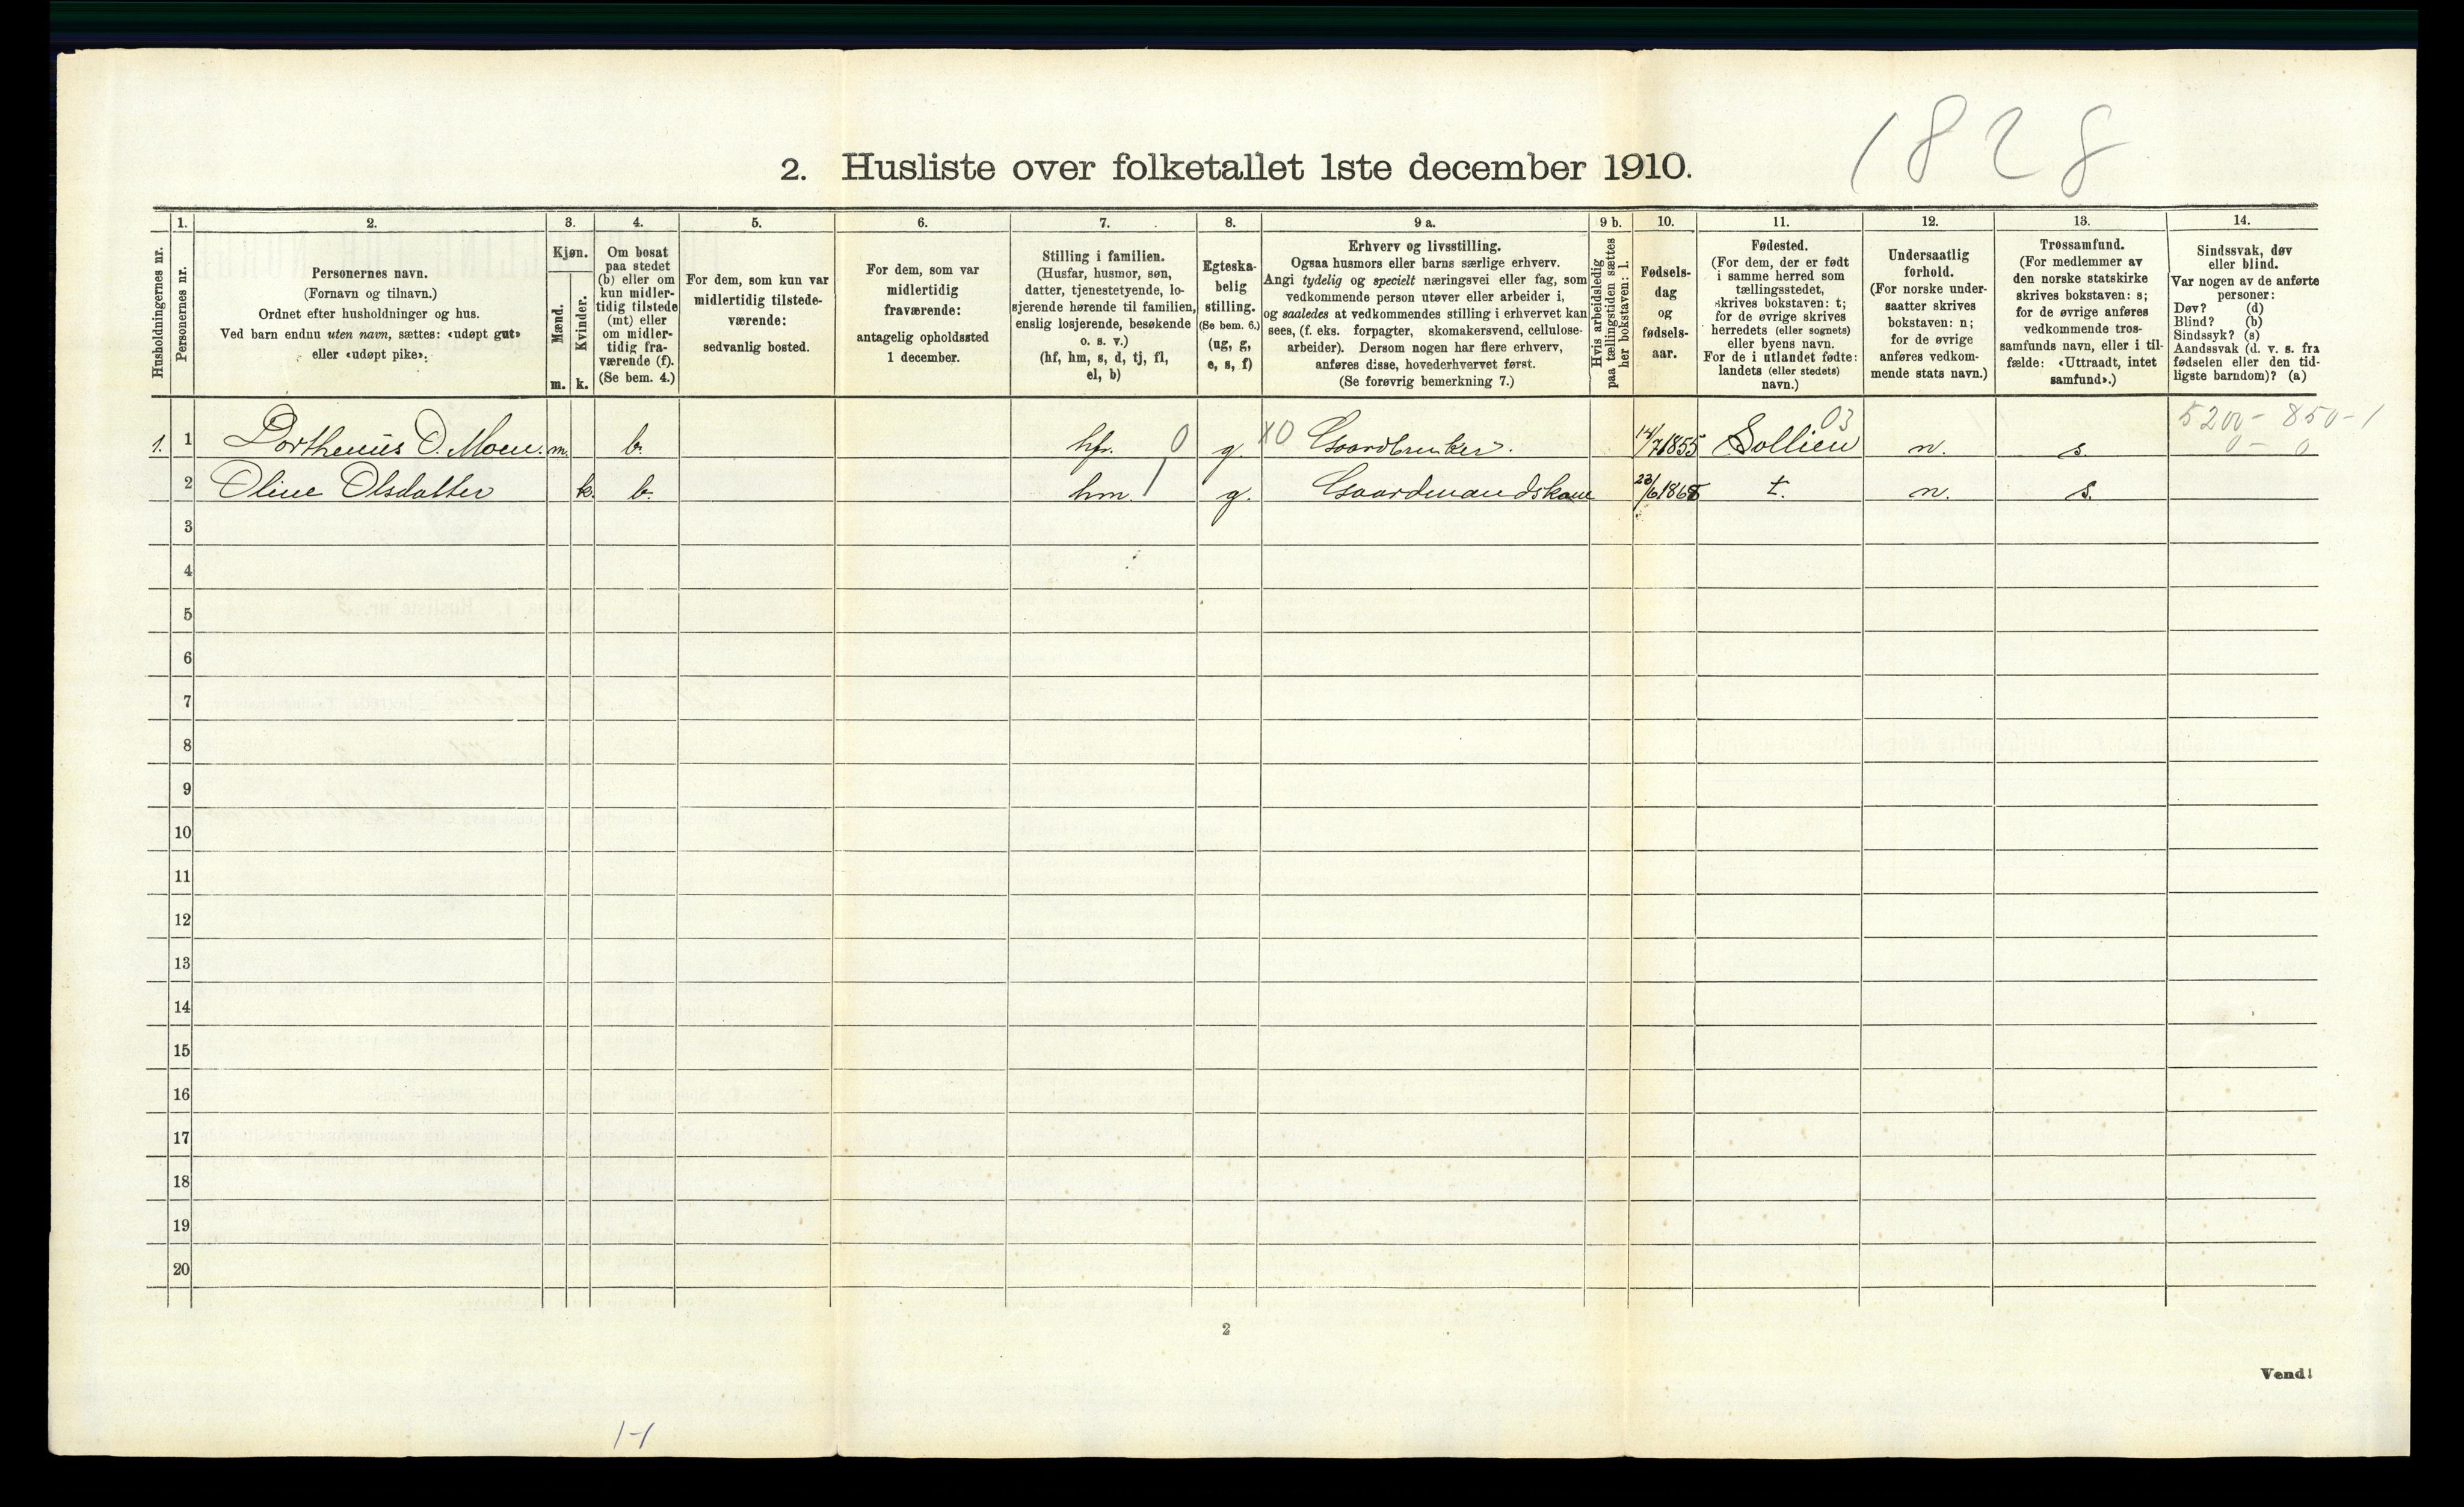 1828
2. Husliste over folketallet 1ste december 1910.
1. 2. 3. 4. 5. 6. 7. 8. 9 a. 9 b. 10. 11. 12. 13. 14.
Husholdningernes nr.
Personernes nr.
Personernes navn.
(Fornavn og tilnavn.)
Ordnet efter husholdninger og hus.
Ved barn endnu uten navn, sættes: «udøpt gut»
eller «udøpt pike».
Kjøn.
Mænd.
Kvinder.
m. k.
Om bosat
paa stedet
(b) eller om
kun midler-
tidig tilstede
(mt) eller
om midler-
tidig fra-
værende (f).
(Se bem. 4.)
For dem, som kun var
midlertidig tilstede-
værende:
sedvanlig bosted.
For dem, som var
midlertidig
fraværende:
antagelig opholdssted
1 december.
Stilling i familien.
(Husfar, husmor, søn,
datter, tjenestetyende, lo-
sjerende hørende til familien,
enslig losjerende, besøkende
o. s. v.)
(hf, hm, s, d, tj, fl,
el, b)
Egteska-
belig
stilling.
(Se bem. 6.)
(ug, g,
e, s, f)
Erhverv og livsstilling.
Ogsaa husmors eller barns særlige erhverv.
Angi tydelig og specielt næringsvei eller fag, som
vedkommende person utøver eller arbeider i,
og saaledes at vedkommendes stilling i erhvervet kan
sees, (f. eks. forpagter, skomakersvend, cellulose-
arbeider). Dersom nogen har flere erhverv,
anføres disse, hovederhvervet først.
(Se forøvrig bemerkning 7.)
Hvis arbeidsledig
paa tællingstiden sættes
her bokstaven: l.
Fødsels-
dag
og
fødsels-
aar.
Fødested.
(For dem, der er født
i samme herred som
tællingsstedet,
skrives bokstaven: t;
for de øvrige skrives
herredets (eller sognets)
eller byens navn.
For de i utlandet fødte:
landets (eller stedets)
navn.)
Undersaatlig
forhold.
(For norske under-
saatter skrives
bokstaven: n;
for de øvrige
anføres vedkom-
mende stats navn.)
Trossamfund.
(For medlemmer av
den norske statskirke
skrives bokstaven: s;
for de øvrige anføres
vedkommende tros-
samfunds navn, eller i til-
fælde: «Uttraadt, intet
samfund».)
Sindssvak, døv
eller blind.
Var nogen av de anførte
personer:
Døv? (d)
Blind? (b)
Sindssyk? (s)
Aandssvak (d. v. s. fra
fødselen eller den tid-
ligste barndom)? (a)
03 5200 - 850 - 1
1. 1 Dorthenius O. Moen. m. b. hf. 0 g. X0 Gaardbruker. 14/7 1855 Sollien n. s. 0 - 0
2 Oline Olsdatter k. b. hm. 1 g. Gaardmandskone 23/6 1868 t. n. s.
3
4
5
6
7
8
9
10
11
12
13
14
15
16
17
18
19
20
2
Vend!
1-1